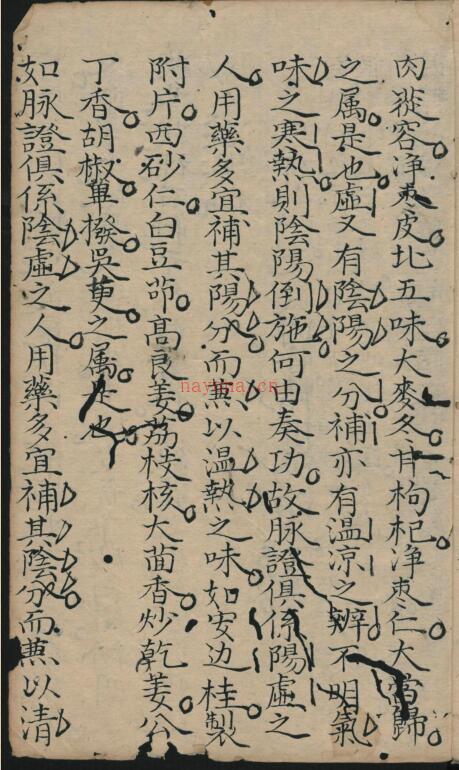 肉蓯容淨枣皮北五味大麥冬甘枸杞淨枣仁大當歸
之属是也虛又有陰陽之分補亦有温凉之辨不明氣
味之寒熱則陰陽倒施何由奏功故脉證俱係陽虛之
人用藥多宜補其陽分而兼以温熱之味如安边桂製
附片西砂仁白豆莭高良姜荔枝核大茴香炒乾姜公
丁香胡椒蓽撥吳萸之属是也
如脉證俱係陰虛之人用藥多宜補其陰分而兼以清